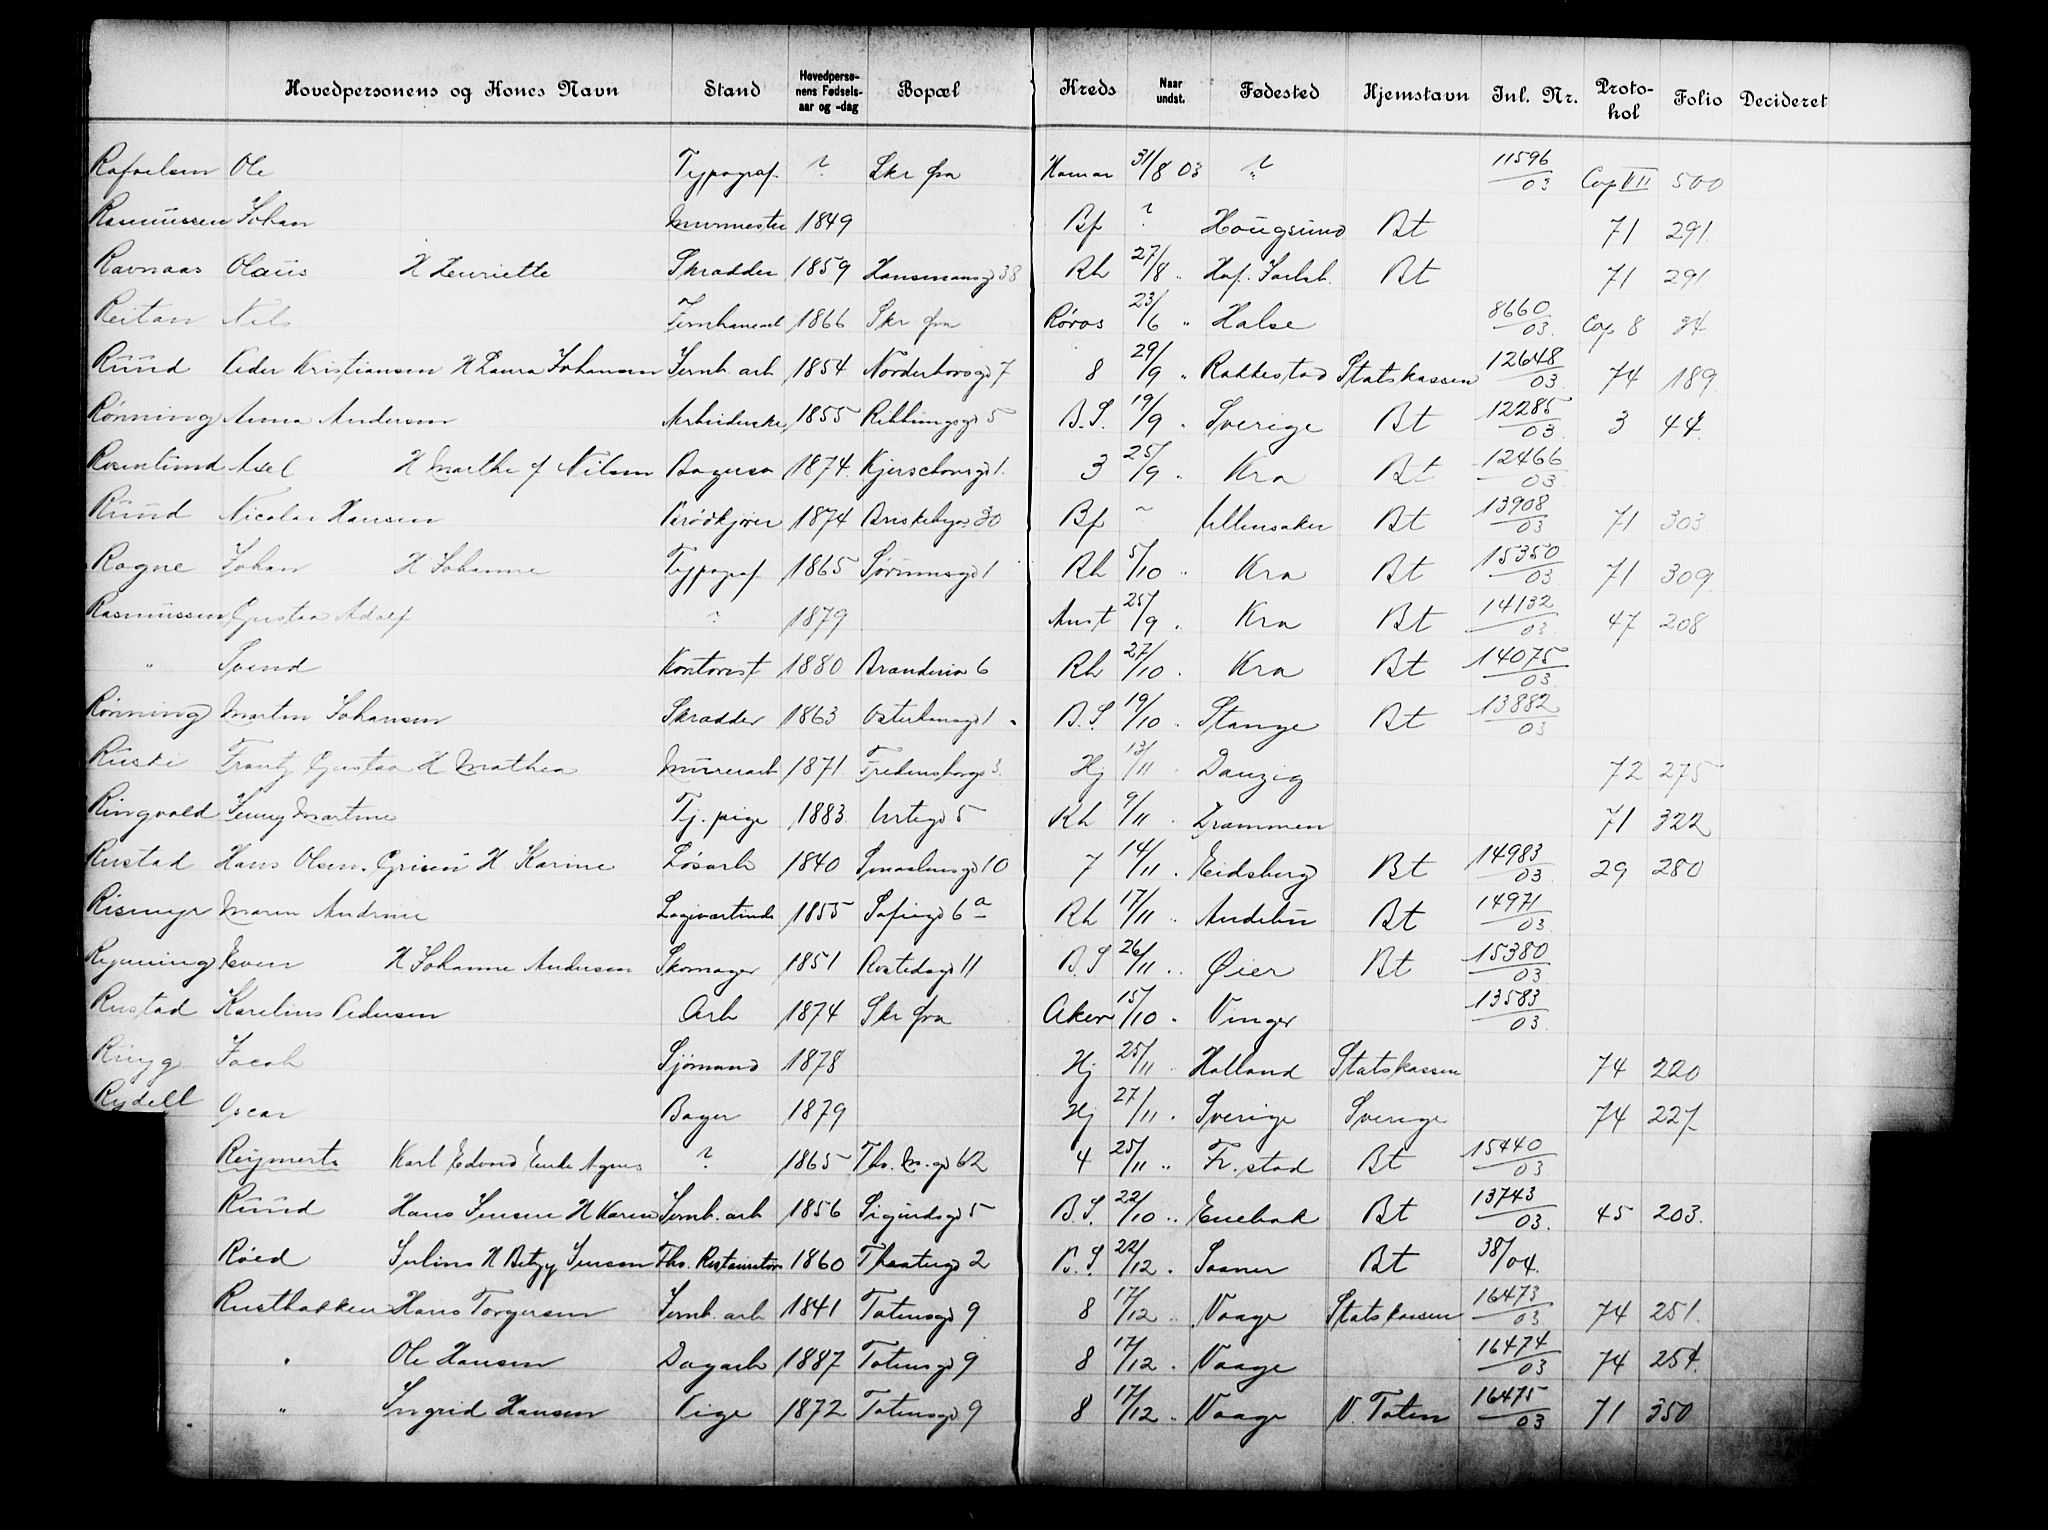 Hovedpersonens og Kones Navn Stand Hovedpersonens Fødselsaar og -dag Bopæl Kreds Naar undst. Fødested Hjemstavn Inl. Nr. Protokol Folio Decideret
Rafaelsen Ole Typograf ? Skr fra Hamar 31/8 03 ? 11596/03 Cop VII 500
Rasmussen Johan Murmester 1849 Bf ? Hougsund Bt 71 291
Ravnaas Olaus H Henriette Skrædder 1859 Hausmansgd 38 Rh 27/8 " Hof. Jarlsb. Bt 71 291
Reitan Nils 1866 Skr fra Røros 23/6 " Halse 8660/03 Cop 8 34
Ruud Peder Kristiansen H Laura Johansen Jernb. arb 1854 Norderhovsgd 7 8 29/9 " Rakkestad Statskassen 12648/03 74 189
Rønning Anna Andersen Arbeiderske 1855 Ribbungsgd 5 B.S. 19/9 " Sverige Bt 12285/03 3 44
Rosenlund Axel H Marthe f Nilsen Bagersv 1874 Kjerschowsgd 1 3 25/9 " Kra Bt 12466/03
Ruud Nicolai Hansen Brødkjører 1874 Briskebyv 30 Bf ~ Ullensaker Bt 13908/03 71 303
Rogne Johan H Johanne Typograf 1865 Sørumsgd 1 Rh 5/10 " Kra Bt 15350/03 71 309
Rasmussen Gustav Adolf ? 1879 Anst 25/9 " Kra Bt 14132/03 47 208
" Svend Kontorist 1880 6 Rh 27/10 " Kra Bt 14075/03
Rønning Martin Johansen Skrædder 1863 Osterhausgd 1 B.S 19/10 " Stange Bt 13882/03
Ruski Frantz Gustav H Mathea Murerarb 1871 Fredensborgv 3 Hj 13/11 " Danzig 72 275
Ringvold Jenny Martine Tj. pige 1883 Urtegd 5 Rh 9/11 " Drammen 71 322
Rustad Hans Olsen H Karine Løsarb 1840 Smaalensgd 10 7 14/11 " Eidsberg Bt 14983/03 29 280
Rismyr Maren Andrine Logivertinde 1855 Sofiegd 6a Rh 17/11 " Andebu Bt 14971/03
Even H Johanne Andersen Skomager 1851 Rostedsgd 11 B.S 26/11 " Øier Bt 15380/03
Rustad Karelius Pedersen Arb 1874 Skr fra Aker 15/10 " Vinger 13583/03
Jacob Sjømand 1878 Hj 25/11 " Holland Statskassen 74 220
Rydell Oscar Bager 1879 Hj 27/11 " Sverige Sverige 74 227
Reymerts Karl Edvard Enke Agnes ? 1865 Th. M. gd 62 4 25/11 " Fr.stad Bt 15440/03
Ruud Hans Jensen H Karen Jernb. arb 1856 Sigurdsgd 5 B.S. 22/10 " Enebak Bt 13743/03 45 203
Røed Julius H Betzy Jensen Fhv. Restauratør 1860 Theatergd 2 B.S. 22/12 " Saaner Bt 38/04
Rustbakken Hans Torgersen Jernb. arb 1841 Totensgd 9 8 17/12 " Vaage Statskassen 16473/03 74 251
" Ole Hansen Dagarb 1887 Totensgd 9 8 17/12 " Vaage 16474/03 74 254
" Ingrid Hansen Pige 1872 Totensgd 9 8 17/12 " Vaage V. Toten 16475/03 71 350